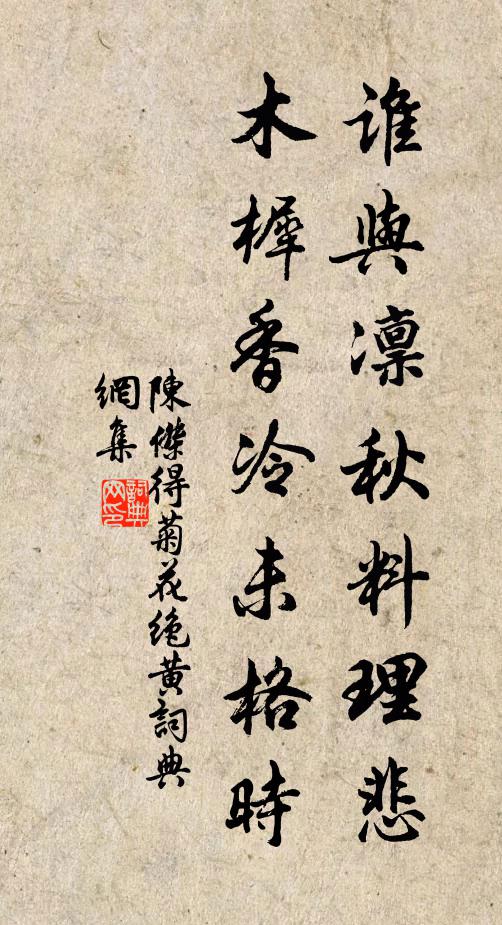 誰與凛秋料理悲
木樨香冷未格時
陳傑得菊花絶黄詞典
網集
詞典網印